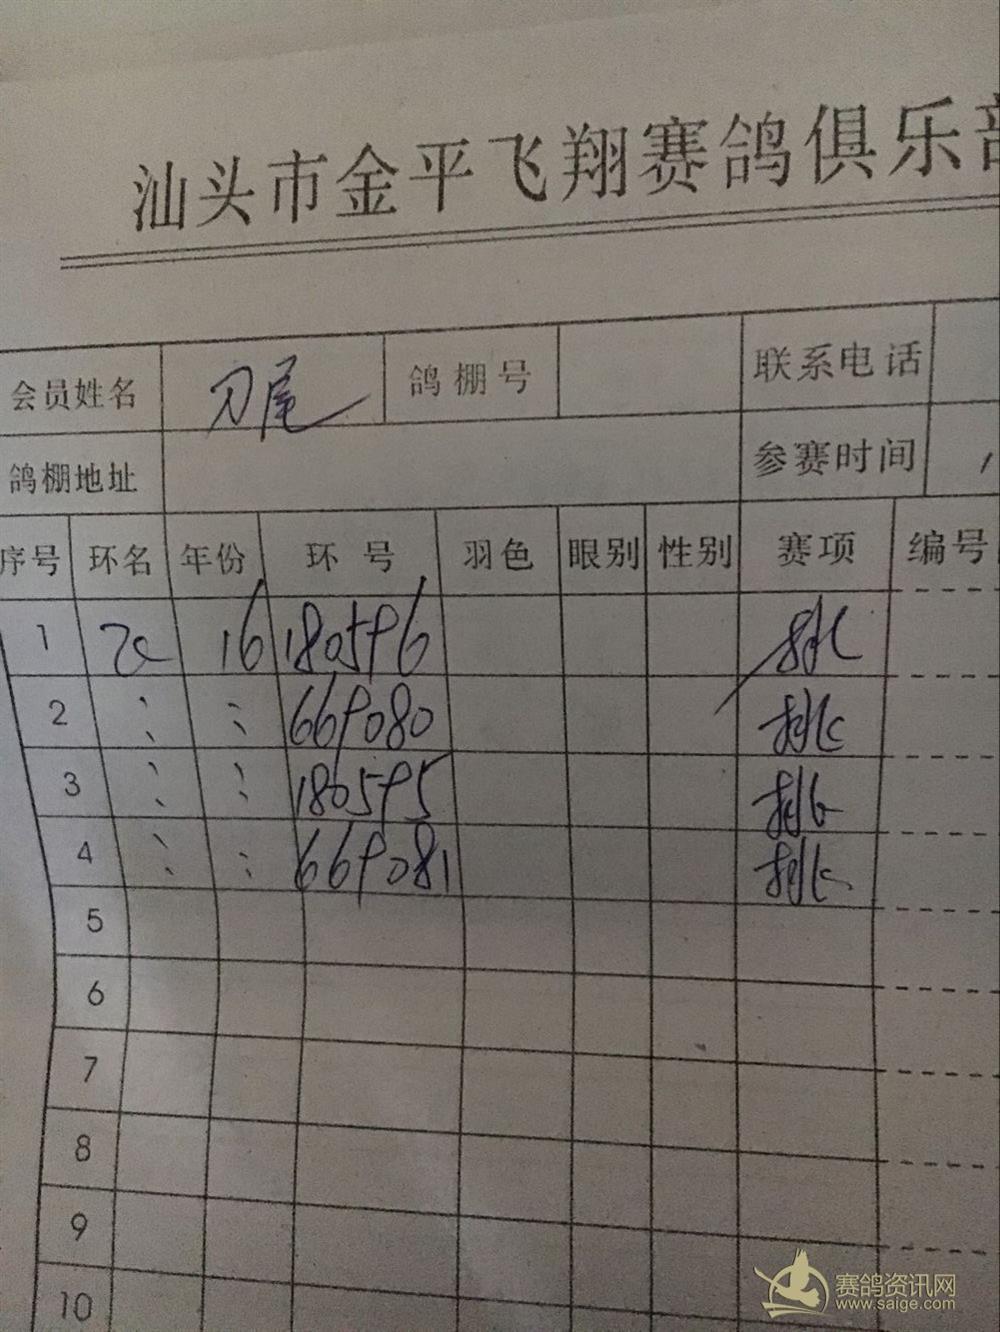 汕头市金平飞翔赛鸽俱乐部
会员姓名 刀尾 鸽棚号 联系电话
鸽棚地址 参赛时间
序号 环名 年份 环号 羽色 眼别 性别 赛项 编号
1 16 1805996
2 〃 〃 669080
3 〃 〃 1805995
4 〃 〃 669081
5
6
7
8
9
10
赛鸽资讯网
www.saige.com